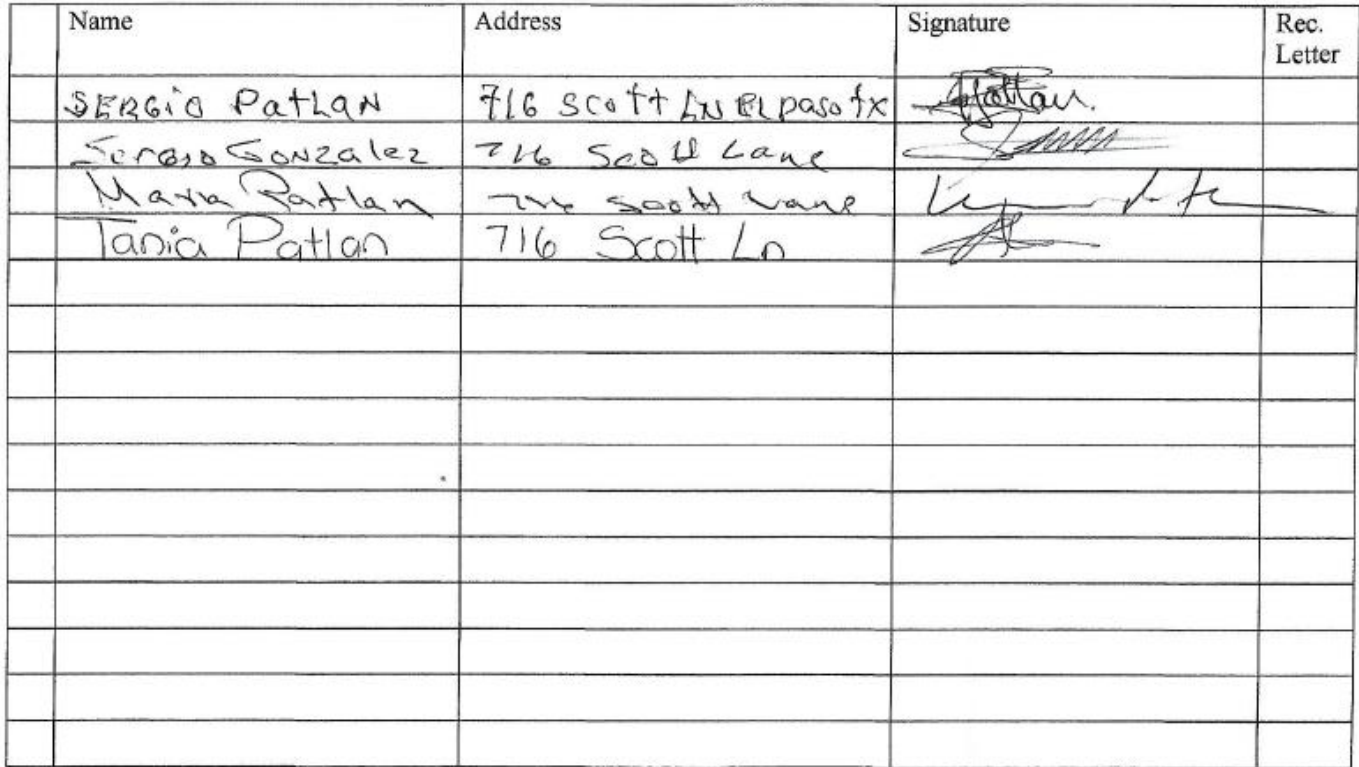 Name Address Signature Rec. Letter
SERGIO PATLAN 716 Scott LN El paso tx
Gonzalez 716 Scott Lane
Maria Patlan 716 Scott Lane
Tania Patlan 716 Scott Ln